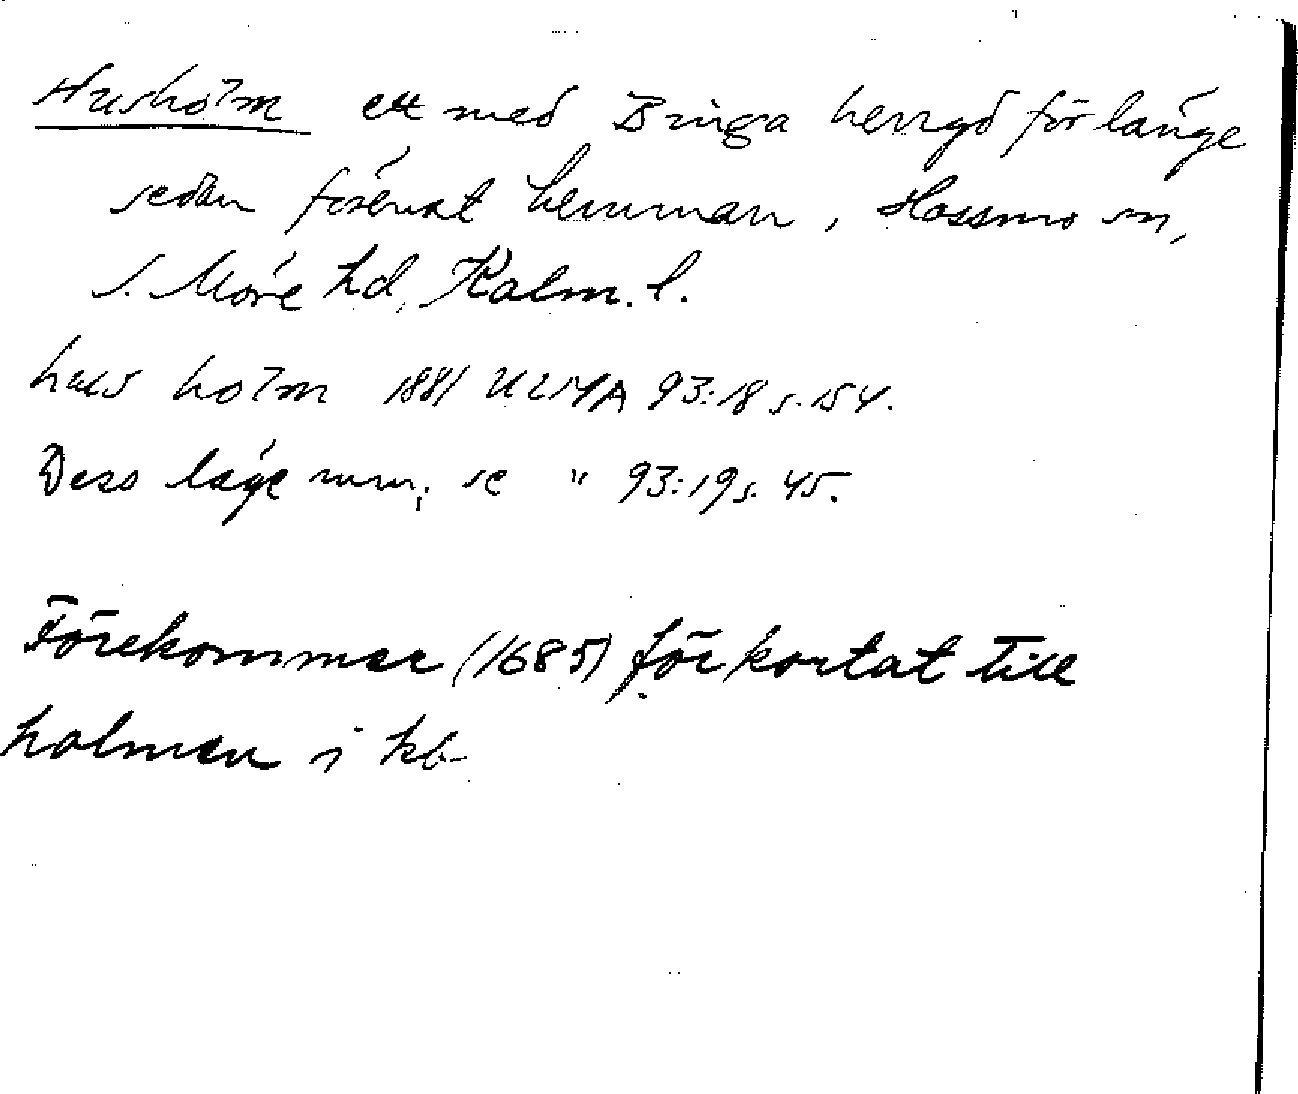 Husholm ett med Binga herrgd för länge
sedan förenat hemman, Hossmo sn,
S. Möre hd, Kalm. l.
hus holm 1881 ULMA 93:18 s. 154.
Dess läge mm, se " 93:19 s. 45.
Förekommer (1685) förkortat till
holmen i kb